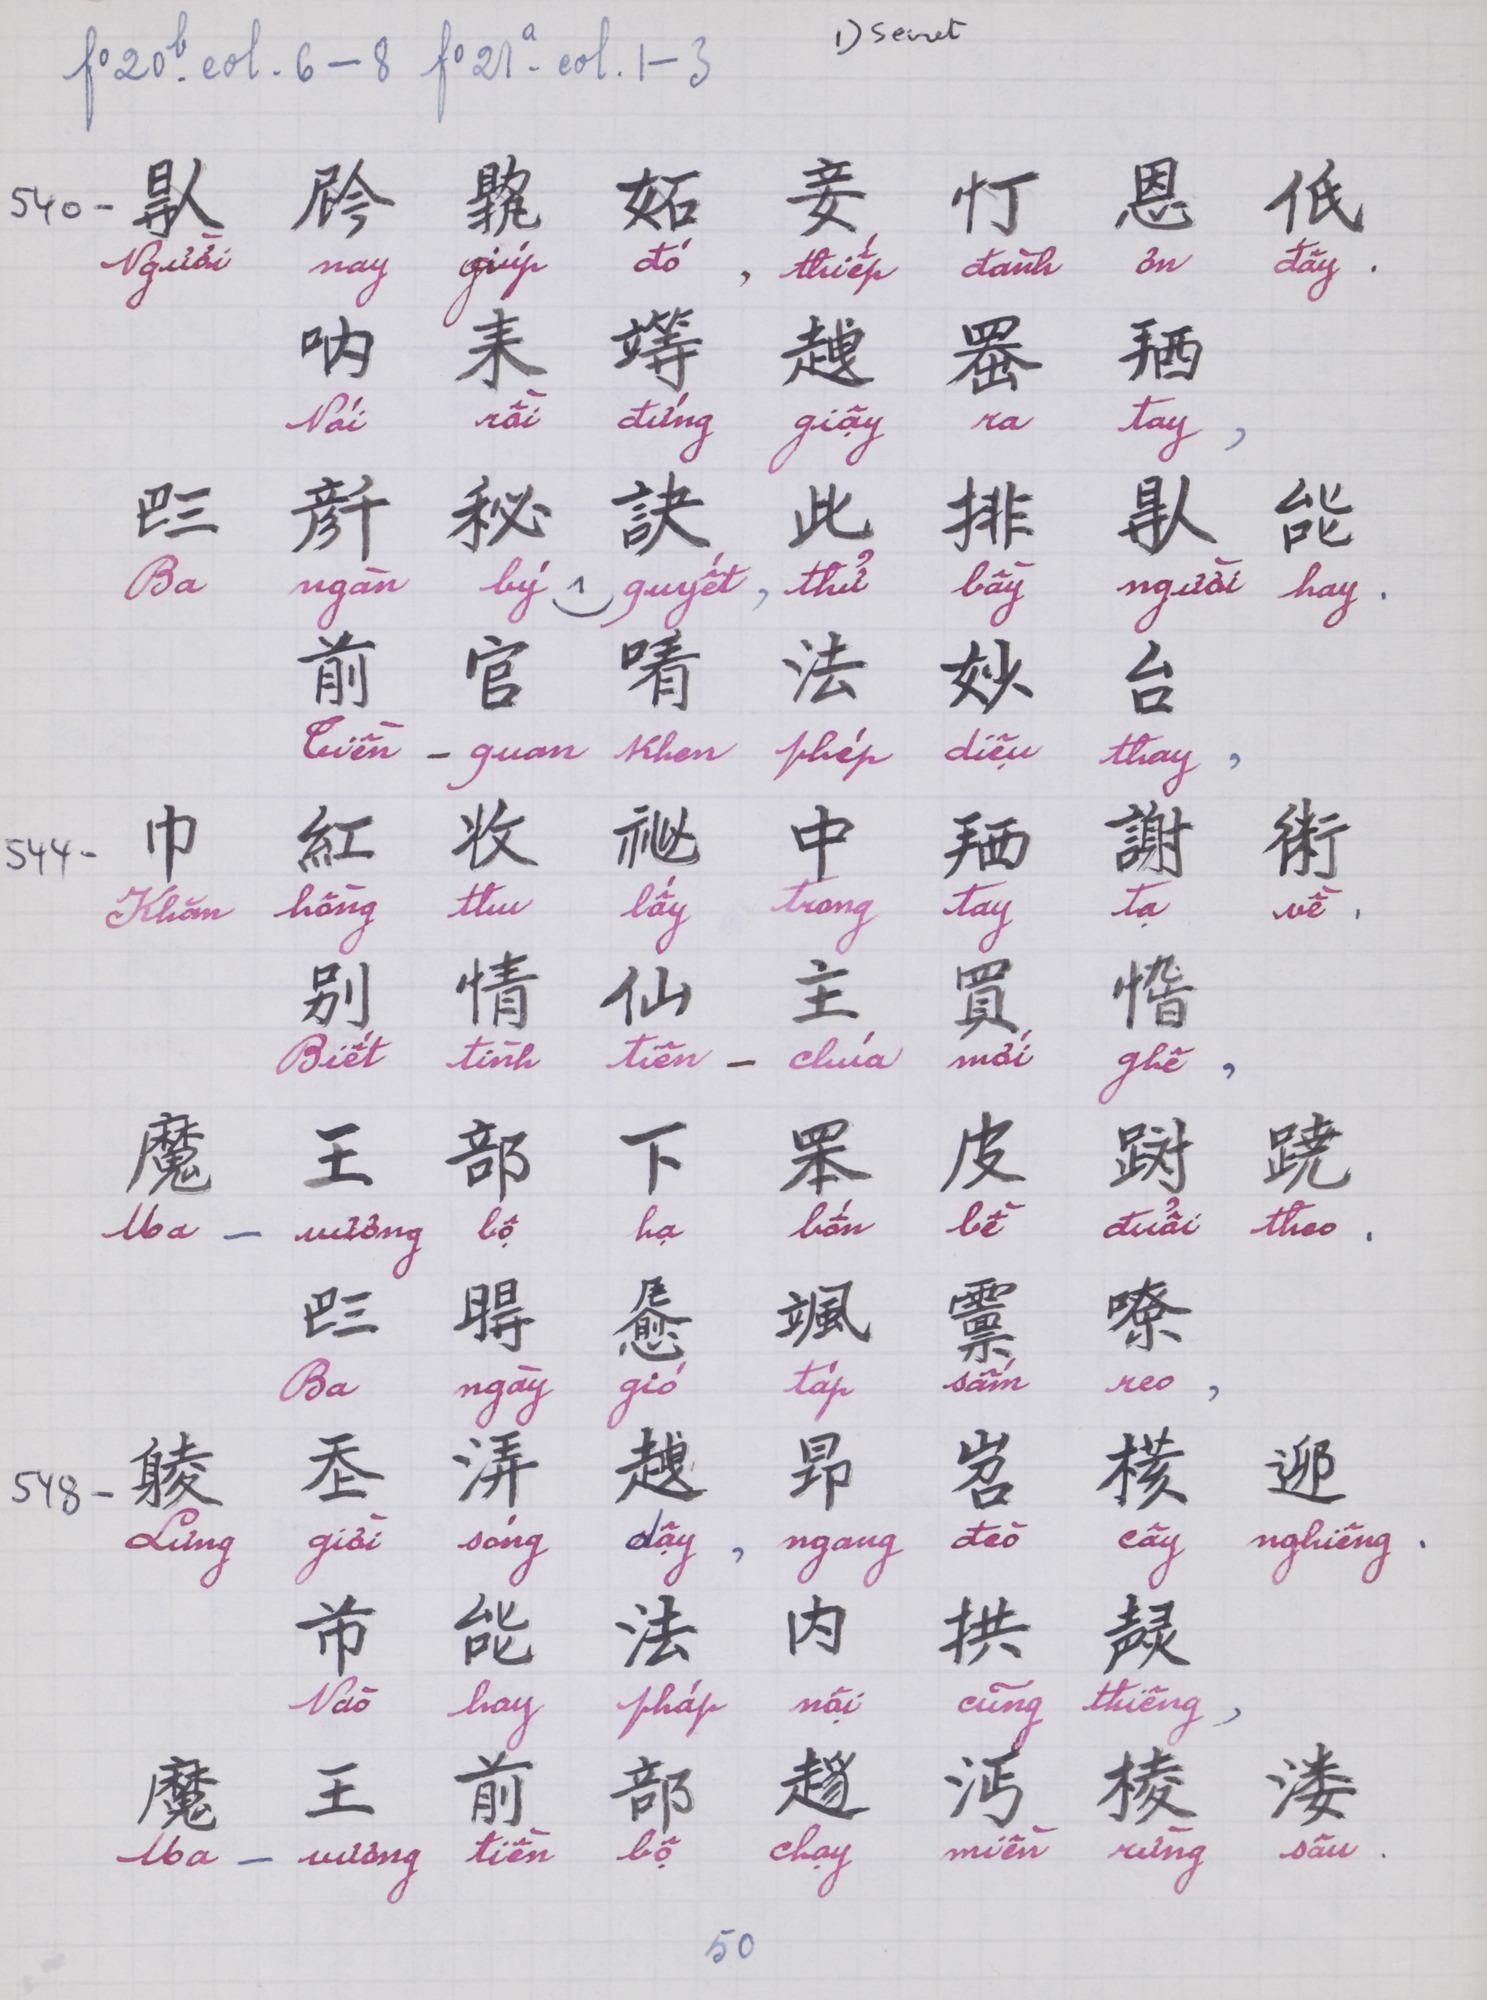 fº20ᵇ. col. 6 – 8 fº21ª. col. 1 – 3
1) Secret
540 –
恩 低
Người nay giúp đó, thiếp đành ơn đấy.
吶 耒 越
Nói rồi đứng giậy ra tay,
𠀧 秘 訣 此 排 能
Ba ngàn bý 1 quyết, thử bầy người hay.
前 官 㖫 法 妙 台
Tiền – quan khen phép diệu thay,
544 –
巾 紅 收 祕 中 謝 術
Khăn hồng thu lấy trong tay tạ về.
別 情 仙 主 買
Biết tình tiên – chúa mới ghê,
魔 王 部 下 皮 蹺
Ma – vương bộ hạ bốn bề đuổi theo.
𠀧 颯 嘹
Ba ngày gió táp sấm reo,
548 –
越 昂 岧 迎
Lưng giời sóng dậy, ngang đèo cây nghiêng.
能 法 内 拱
Nào hay pháp nội cũng thiêng,
魔 王 前 部 沔 棱 溇
Ma – vương tiền bộ chạy miền rừng sâu.
50